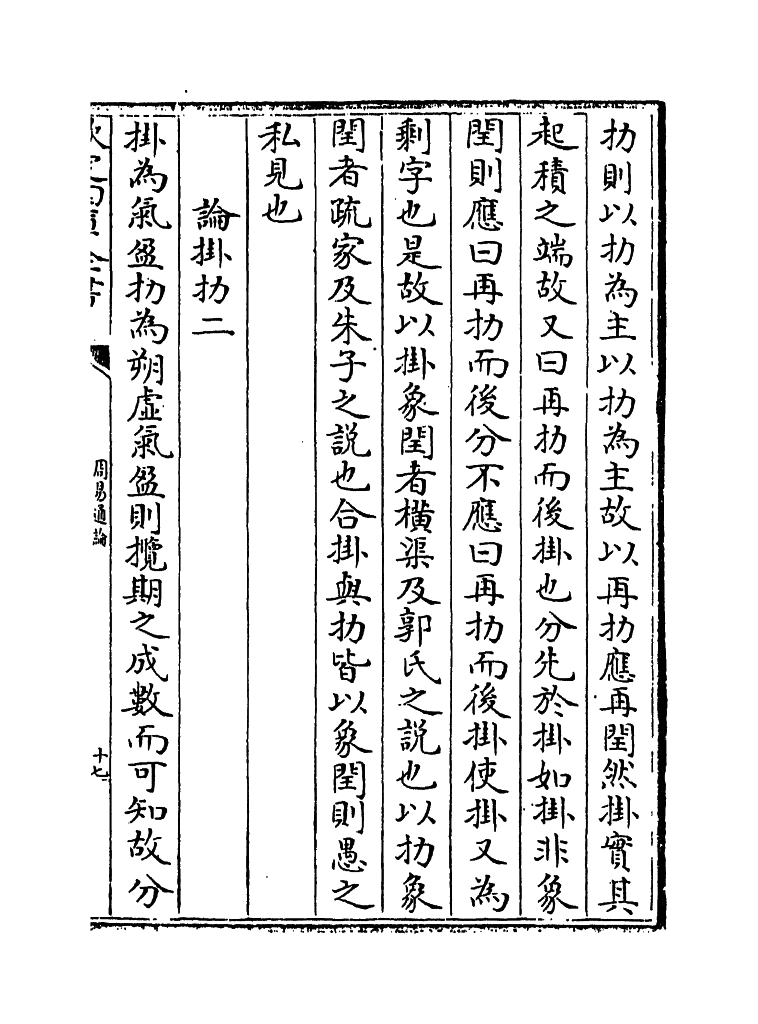 扐則以扐為主以扐為主故以再扐應再閏然掛實其
起積之端故又曰再扐而後掛也分先於掛如掛非象
閏則應曰再扐而後分不應曰再扐而後掛使掛又為
剩字也是故以掛象閏者橫渠及郭氏之說也以扐象
閏者疏家及朱子之說也合掛與扐皆以象閏則愚之
私見也
論掛扐二
掛為氣盈扐為朔虛氣盈則攬期之成數而可知故分
欽定四庫全書
周易通論
十七